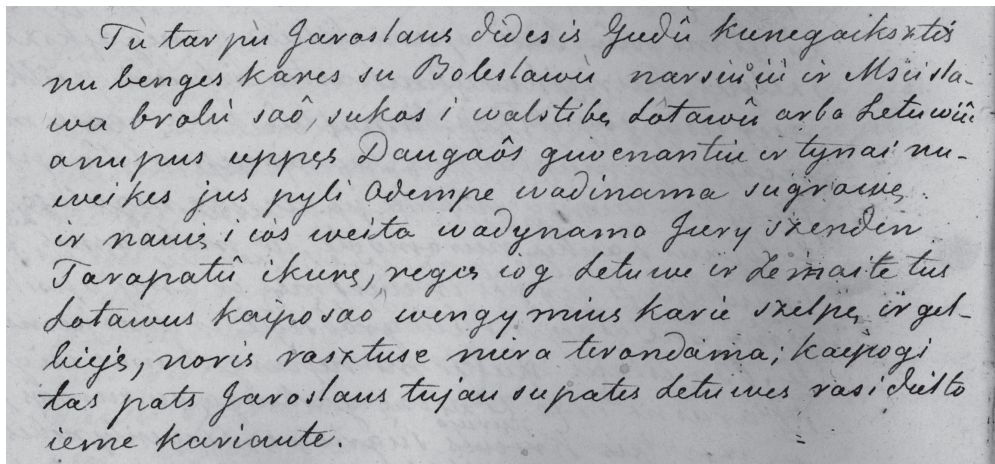 Tu tarpu Jaroslaus didesis Gudû kunegaiksztis
nu benges kares su Boleslawu narsiuiu ir Mscisla-
wa brolu saô, sukos i walstibę Lotawû arba Letuwiû
anupus uppęs Daugaôs guwenantiu ir tynai nu-
weikes jus pyli Odempe wadinama sugrowę
ir nauię i ios weita wadynama Jury szenden
Tarapatû ikurę, regęs iog Letuwe ir Żemaite tus
Lotawus kaipo sao wengymius karie szelpę ir gel-
bieję, noris rasztuse nира terandama; kaipogi
tas pats Jaroslaus tujau su patis Letuwes rasi dielto
ieme kariaute.